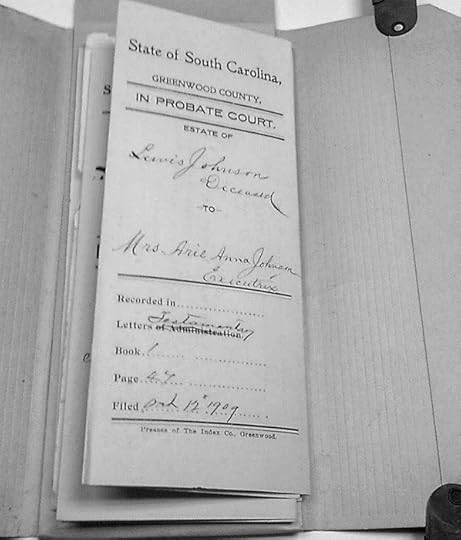 State of South Carolina,
GREENWOOD COUNTY,
IN PROBATE COURT.
ESTATE OF
Lewis Johnson
Deceased
-TO-
Mrs. Arie Anna Johnson
Executrix
Recorded in
Testamentary
Letters of Administration,
Book 1
Page 47
Filed 12" 1909
Presses of The Index Co., Greenwood.